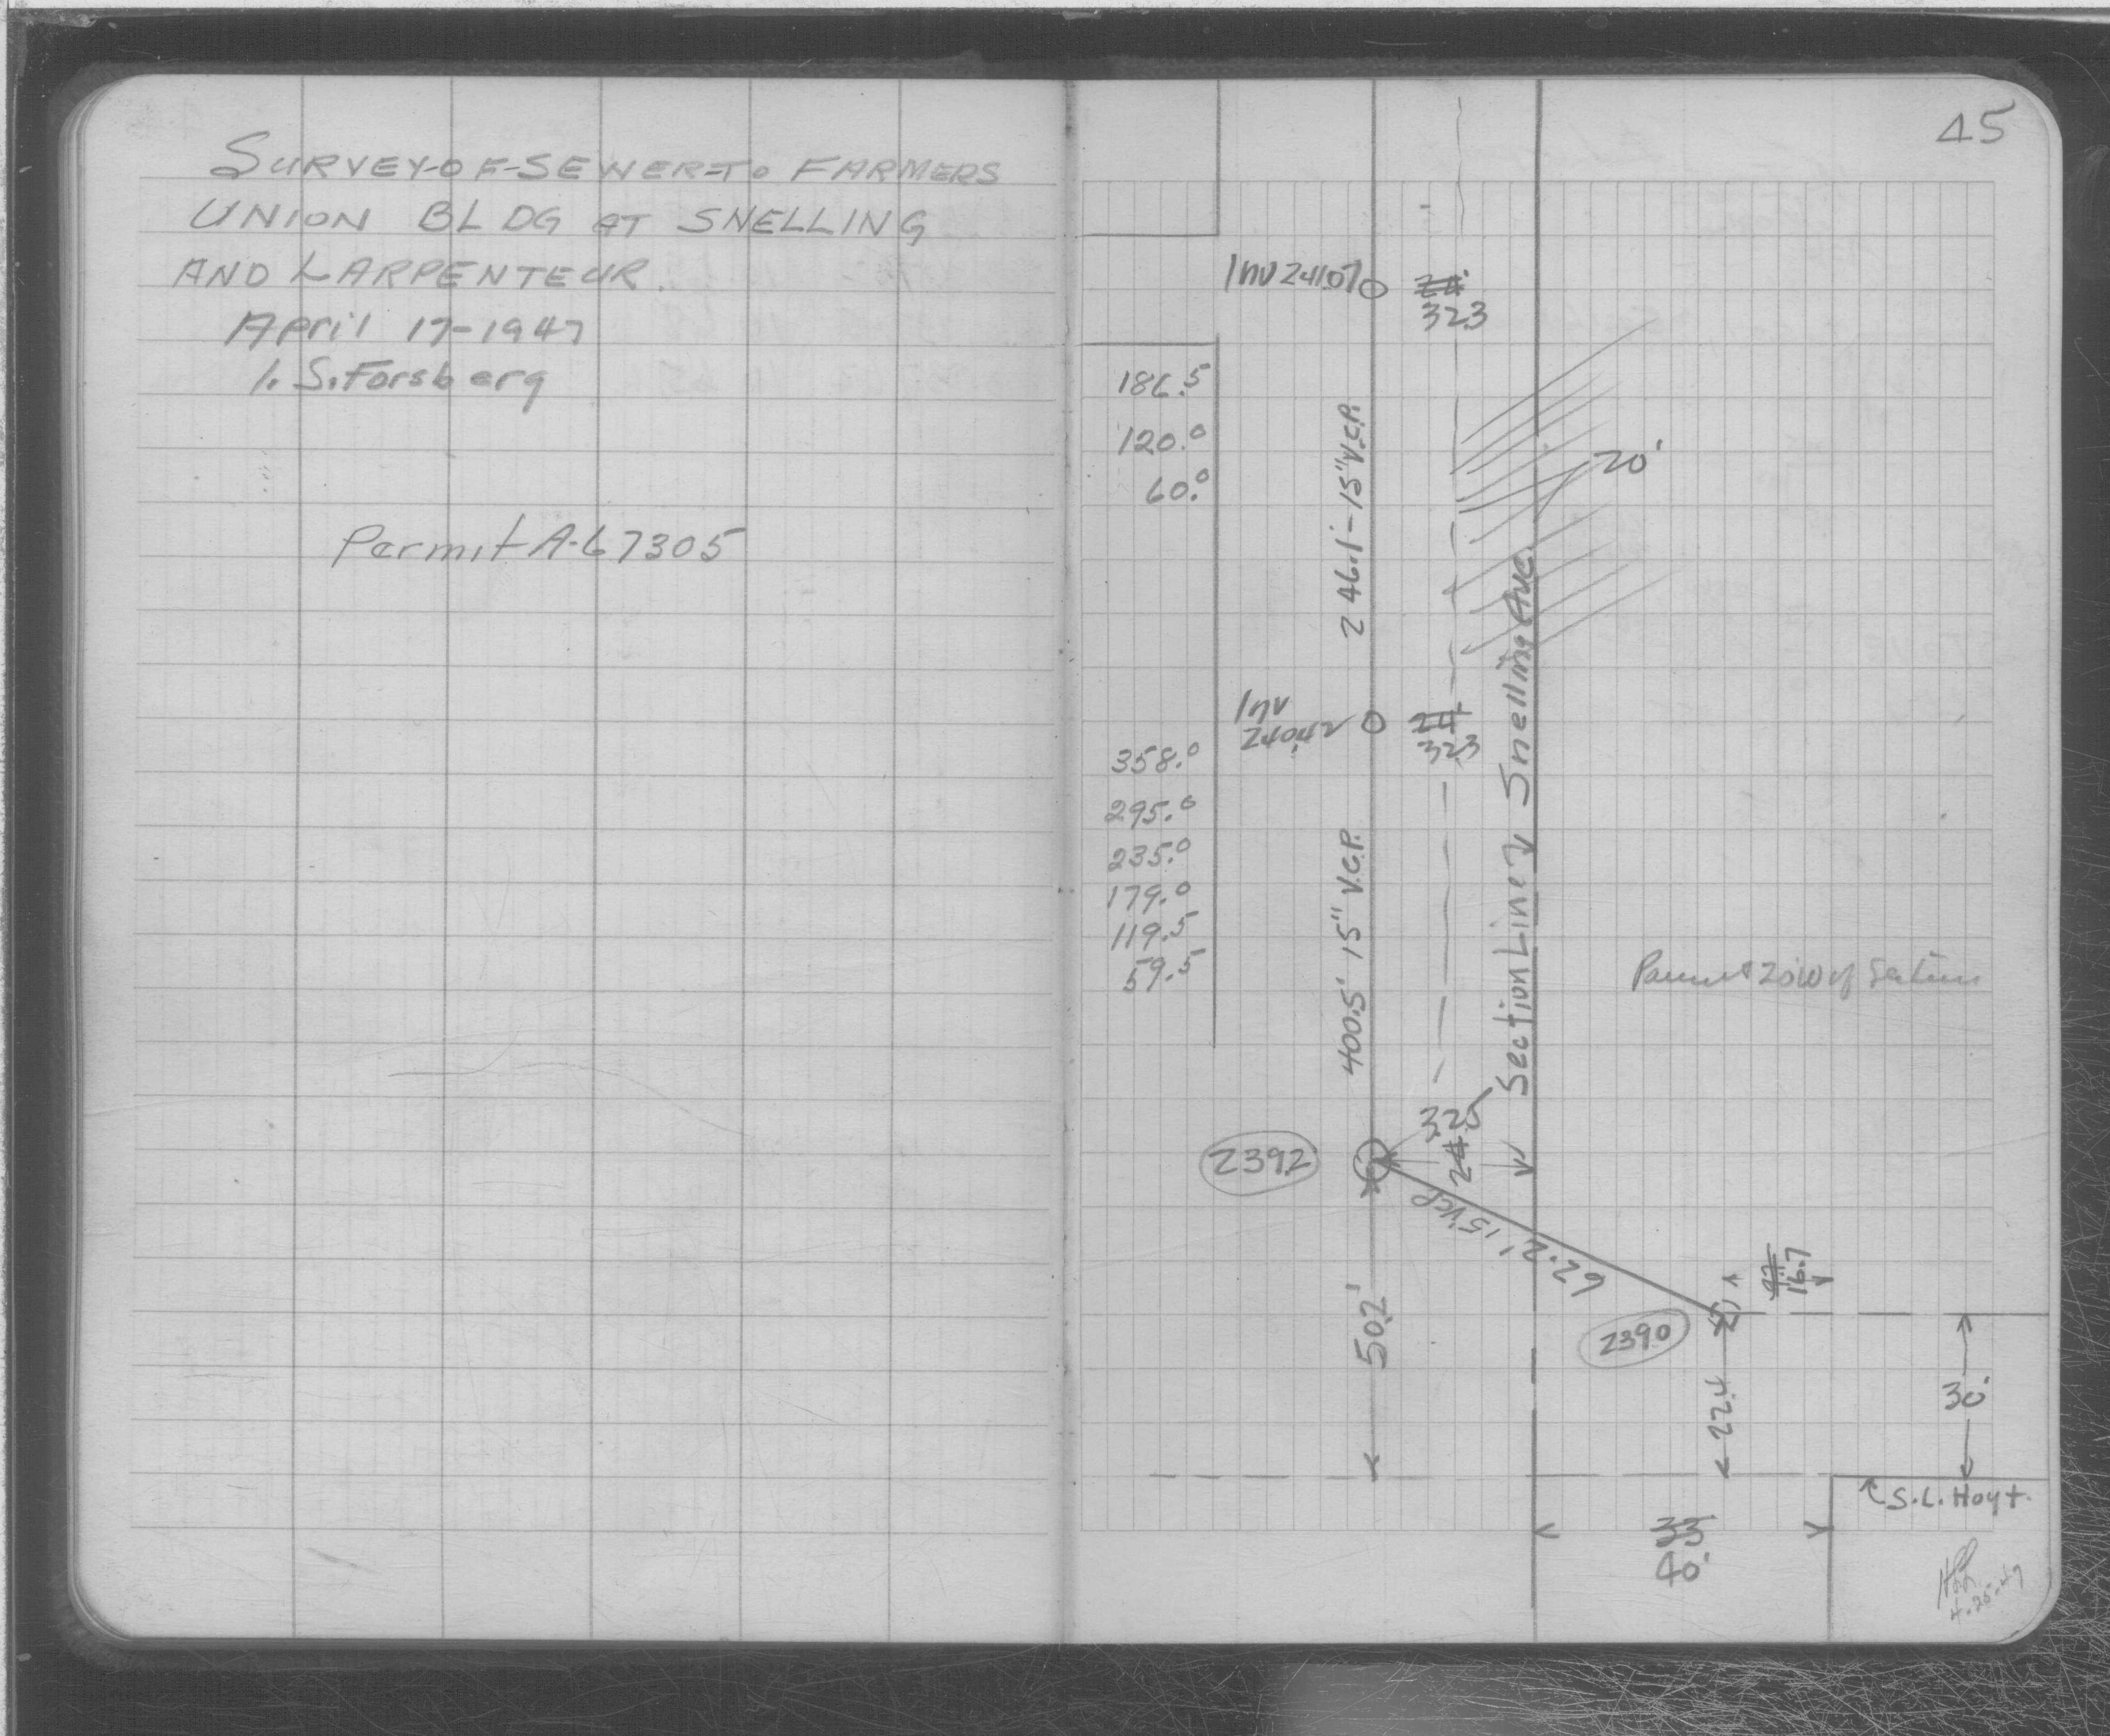 SURVEY-OF-SEWER-TO FARMERS
UNION BLDG AT SNELLING
AND LARPENTEUR.
April 17-1947
I. S. Forsberg
Permit A-67305
45
Inv 241.07
24.
32.3
186.5
120.0
60.0
246.1'-15" V.C.P.
20'
Inv
240.42
24.
32.3
358.0
295.0
235.0
179.0
119.5
59.5
400.5' 15" V.C.P.
Section Line Snelling Ave.
20' W of
32.5
24
2392
62.2' 15" VCP
50.2'
2390
16.7
22.4
30'
S.L. Hoyt.
33
40'
4-25-47